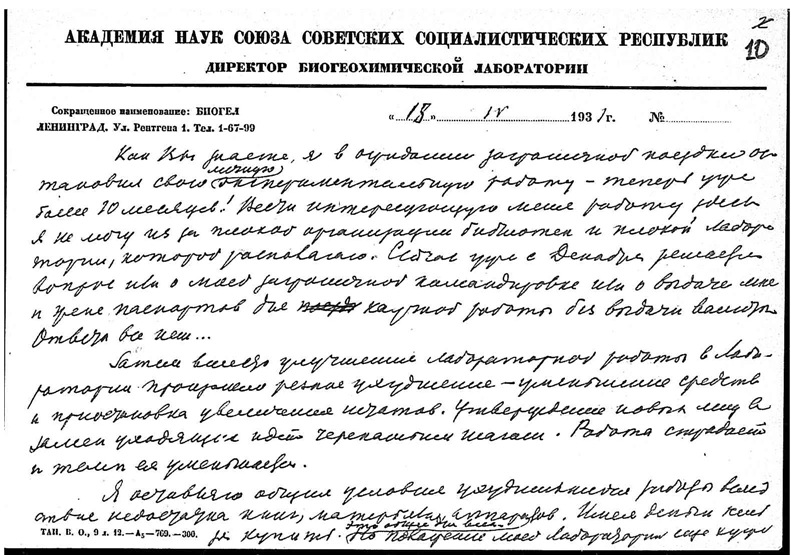 2
10
АКАДЕМИЯ НАУК СОЮЗА СОВЕТСКИХ СОЦИАЛИСТИЧЕСКИХ РЕСПУБЛИК
ДИРЕКТОР БИОГЕОХИМИЧЕСКОЙ ЛАБОРАТОРИИ
Сокращенное наименование: БИОГЕЛ
ЛЕНИНГРАД. Ул. Рентгена 1. Тел. 1-67-99
« 18 » IV 1931 г. №
Как Вы знаете, я в ожидании заграничной поездки ос-
личную
тановил свою экспериментальную работу – теперь уже
более 10 месяцев! Вести интересующую меня работу здесь
я не могу из за плохой организации библиотек и плохой Лабора
тории, которой располагаю. Сейчас уже с Декабря решается
вопрос или о моей заграничной командировке или о выдаче мне
и жене паспортов для научной работы без выдачи валюты.
Ответа все нет...
Затем вместо улучшения лабораторной работы в Лабо-
ратории произошло резкое ухудшение – уменьшение средств
и приостановка увеличения штатов. Утверждение новых лиц в
замен уходящих идет черепашьим шагом. Работа страдает
и темп ее уменьшается.
Я оставляю общие условия ухудшившейся работы вслед
ствие недостатка книг, материалов, аппаратов. Имея деньги нель
это общее для всех
зя купить. Но положение моей Лаборатории еще хуже
ТАН. В. О., 9 л. 12.—А5—769.—300.